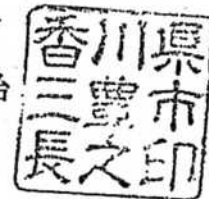 香川県
三豊市
長之印